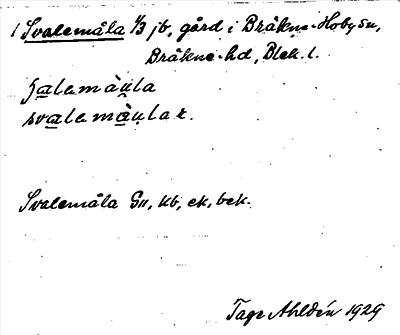 1 Svalemåla 1/3 jb, gård i Bräkne-Hoby sn,
Bräkne hd, Blek. l.
svalemåular.
Svalemåla GII, kb, ek, bek.
Tage Ahldén 1929